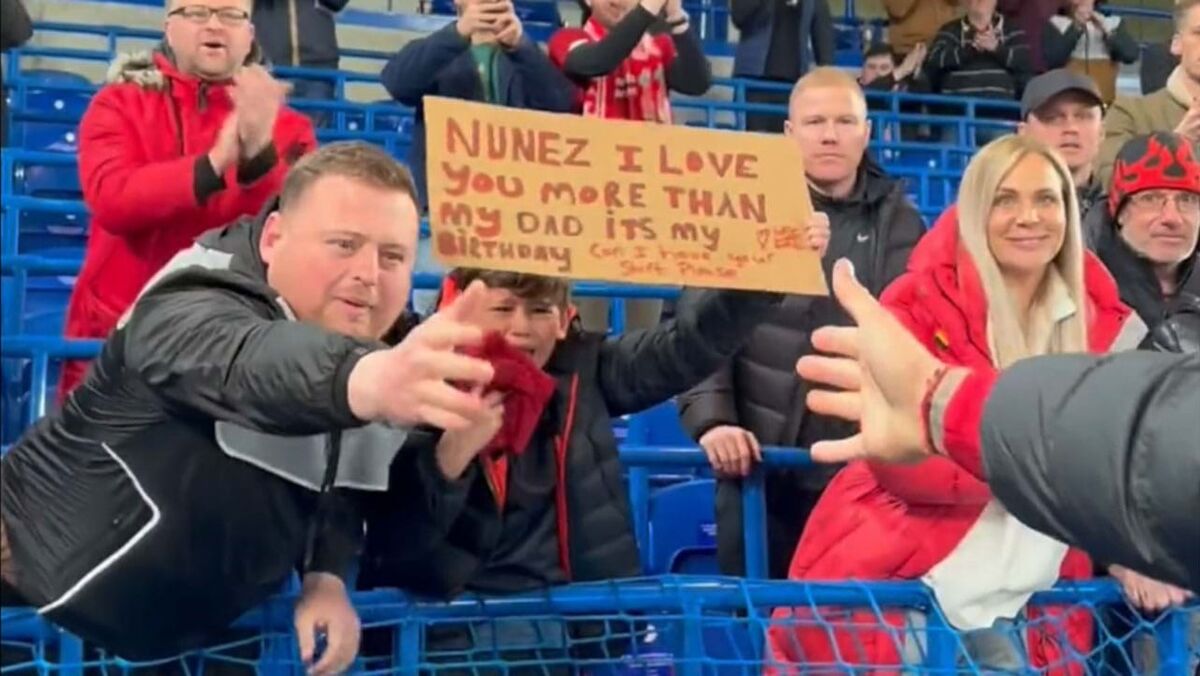 NUNEZ I LOVE
YOU MORE THAN
MY DAD ITS MY
BIRTHDAY Can I have your
Shirt Please